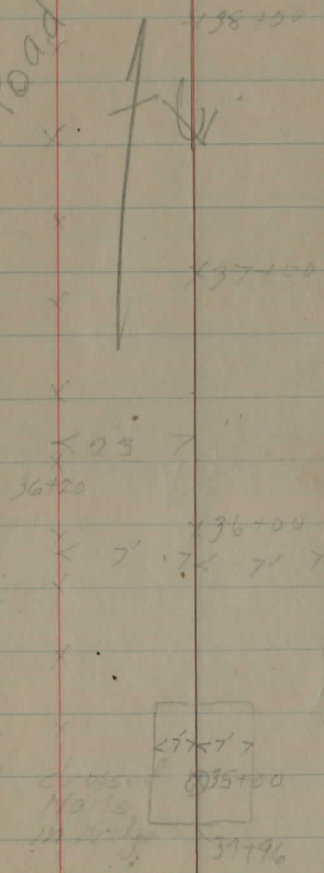 Road
38+00
37+00
23
36+20
36+00
7' 7'
7' 7'
35+00
in
34+96